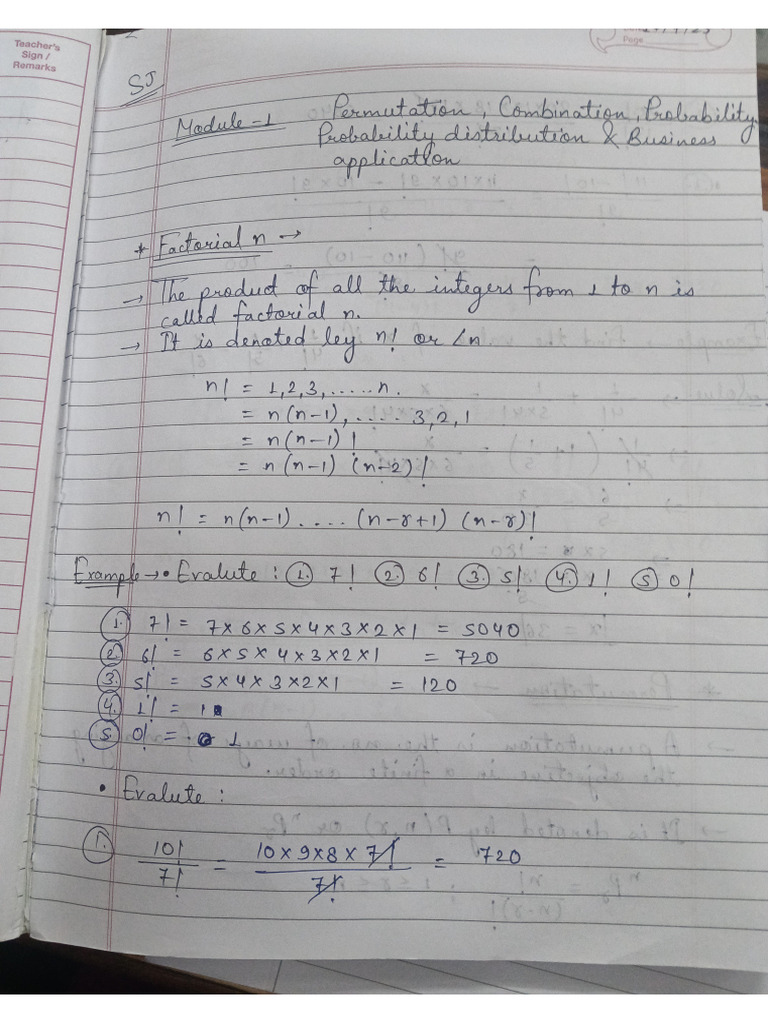 Teacher's
Sign /
Remarks
Page
SJ
Module-1 Permutation, Combination, Probability,
Probability distribution & Business
application
* Factorial n →
→ The product of all the integers from 1 to n is
called factorial n.
→ It is denoted ley n! or ∠n
n! = 1,2,3, ..... n.
= n(n-1), .... 3,2,1
= n(n-1)!
= n(n-1) (n-2)!
n! = n(n-1) .... (n-r+1) (n-r)!
Example → • Evalute : ① 7! ② 6! ③ 5! ④ 1! ⑤ 0!
① 7! = 7×6×5×4×3×2×1 = 5040
② 6! = 6×5×4×3×2×1 = 720
③ 5! = 5×4×3×2×1 = 120
④ 1! = 1
⑤ 0! = 1
• Evalute :
① 10!/7! = 10×9×8×7!/7! = 720